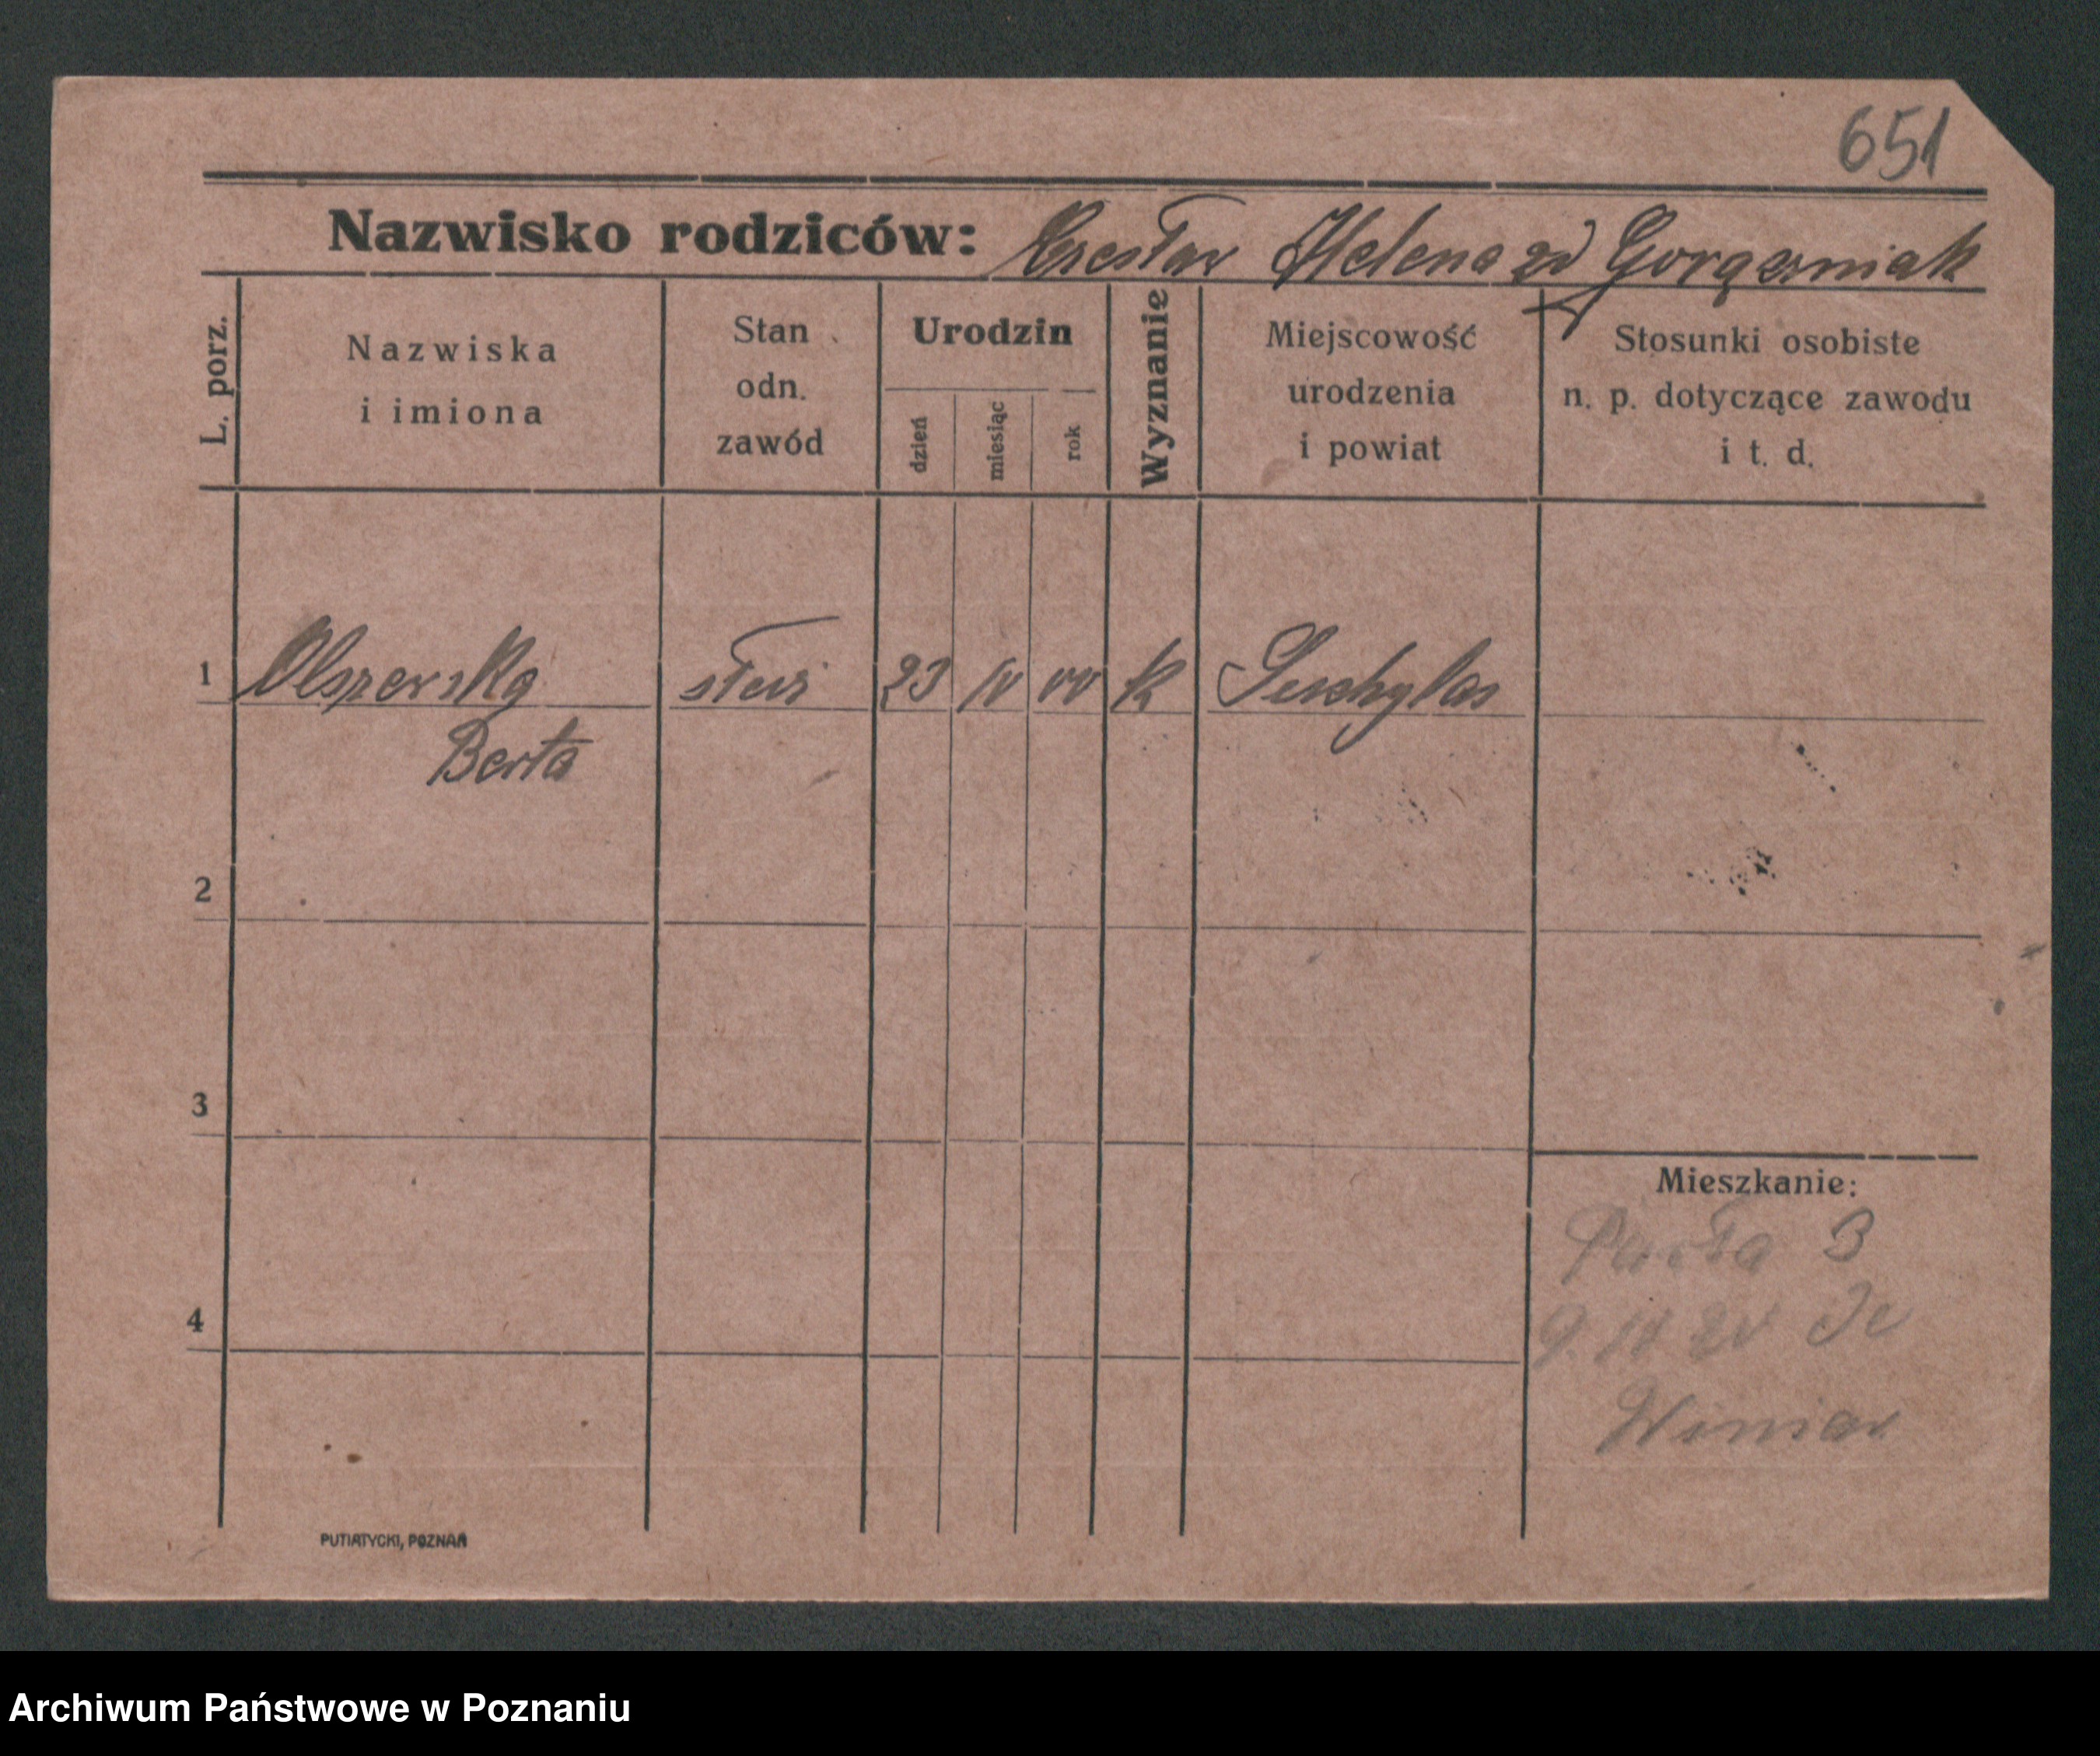 651
Nazwisko rodziców: Czesław Helena zd Gorączniak
L. porz.
Nazwiska
i imiona
Stan
odn.
zawód
Urodzin
dzień
miesiąc
rok
Wyznanie
Miejscowość
urodzenia
i powiat
Stosunki osobiste
n. p. dotyczące zawodu
i t. d.
1 Olszewska służ 23 IV 00 k Suchylas
Berta
2
3
Mieszkanie:
3
4
Winiar
PUTIATYCKI, POZNAŃ
Archiwum Państwowe w Poznaniu